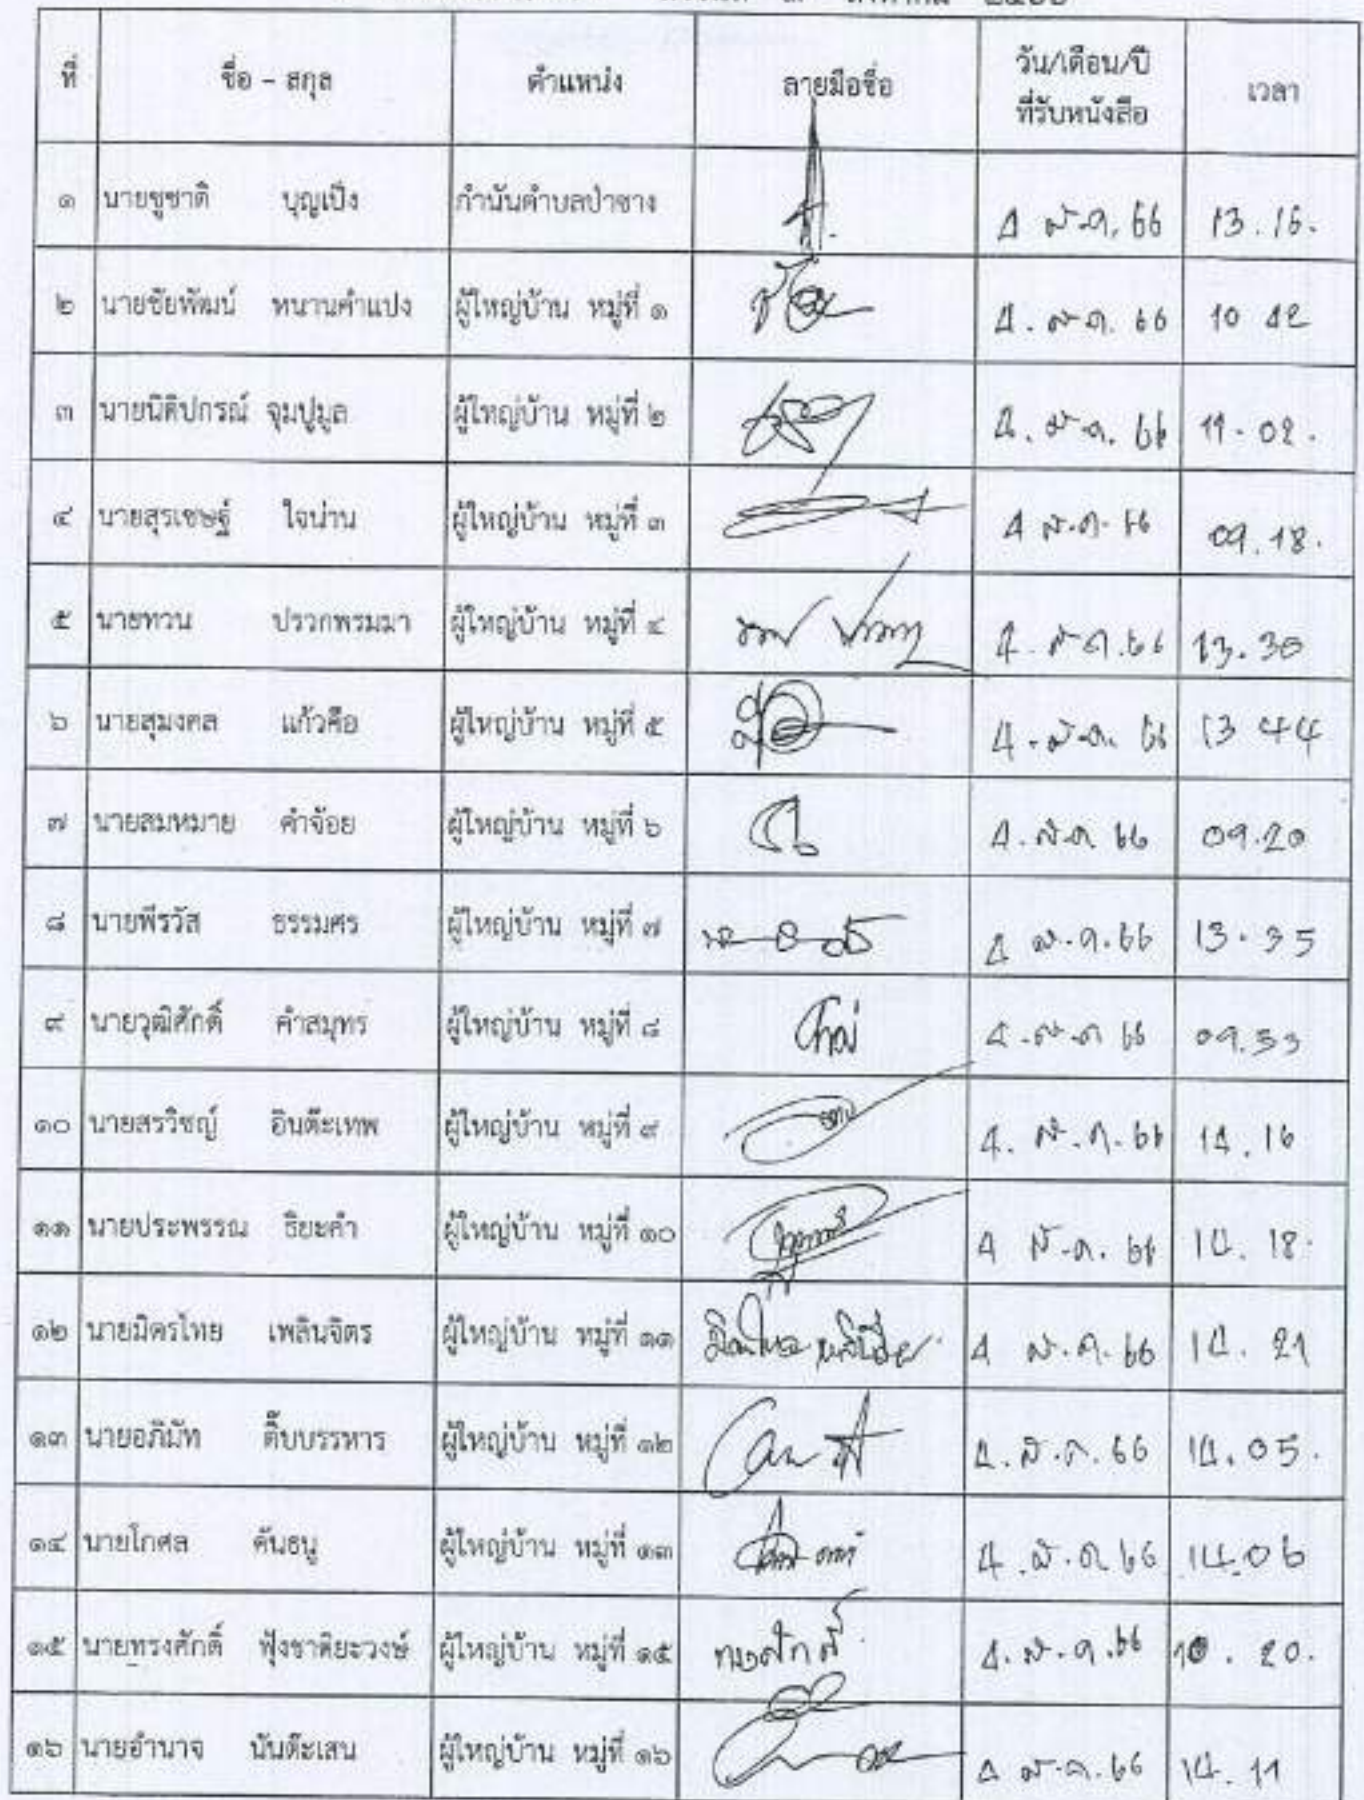 ที่ ชื่อ - สกุล ตำแหน่ง ลายมือชื่อ วัน/เดือน/ปี ที่รับหนังสือ เวลา
๑ นายชูชาติ บุญเป็ง กำนันตำบลป่าซาง 4 ส.ค. 66 13.16.
๒ นายชัยพัฒน์ หนานคำแปง ผู้ใหญ่บ้าน หมู่ที่ ๑ 4. ส.ค. 66 10 42
๓ นายนิติปกรณ์ จุมปูมูล ผู้ใหญ่บ้าน หมู่ที่ ๒ 4. ส.ค. 66 11.02.
๔ นายสุรเชษฐ์ ใจน่าน ผู้ใหญ่บ้าน หมู่ที่ ๓ 4 ส.ค. 66 09.18.
๕ นายทวน ปรวกพรมมา ผู้ใหญ่บ้าน หมู่ที่ ๔ 4. ส.ค. 66 13.30
๖ นายสุมงคล แก้วคือ ผู้ใหญ่บ้าน หมู่ที่ ๕ 4. ส.ค. 66 13 44
๗ นายสมหมาย คำจ้อย ผู้ใหญ่บ้าน หมู่ที่ ๖ 4. ส.ค 66 09.20
๘ นายพีรวัส ธรรมศร ผู้ใหญ่บ้าน หมู่ที่ ๗ 4 ส.ค. 66 13.35
๙ นายวุฒิศักดิ์ คำสมุทร ผู้ใหญ่บ้าน หมู่ที่ ๘ 4. ส.ค 66 09.33
๑๐ นายสรวิชญ์ อินต๊ะเทพ ผู้ใหญ่บ้าน หมู่ที่ ๙ 4. ส.ค. 66 14.16
๑๑ นายประพรรณ ธิยะคำ ผู้ใหญ่บ้าน หมู่ที่ ๑๐ 4 ส.ค. 66 14.18.
๑๒ นายมิตรไทย เพลินจิตร ผู้ใหญ่บ้าน หมู่ที่ ๑๑ 4 ส.ค. 66 14.21
๑๓ นายอภิมัท ติ๊บบรรหาร ผู้ใหญ่บ้าน หมู่ที่ ๑๒ 4. ส.ค. 66 14.05.
๑๔ นายโกศล คันธนู ผู้ใหญ่บ้าน หมู่ที่ ๑๓ 4. ส.ค 66 14.06
๑๕ นายทรงศักดิ์ ฟุ้งชาติยะวงษ์ ผู้ใหญ่บ้าน หมู่ที่ ๑๕ ทรงศักดิ์ 4. ส.ค. 66 10.20.
๑๖ นายอำนาจ นันต๊ะเสน ผู้ใหญ่บ้าน หมู่ที่ ๑๖ 4 ส.ค. 66 14.11